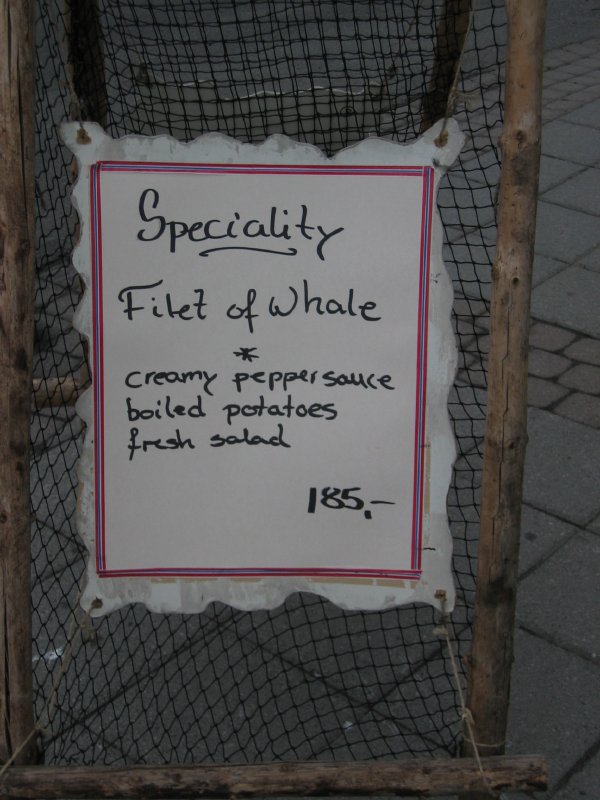 Speciality
Filet of Whale
*
creamy pepper sauce
boiled potatoes
fresh salad
185,-